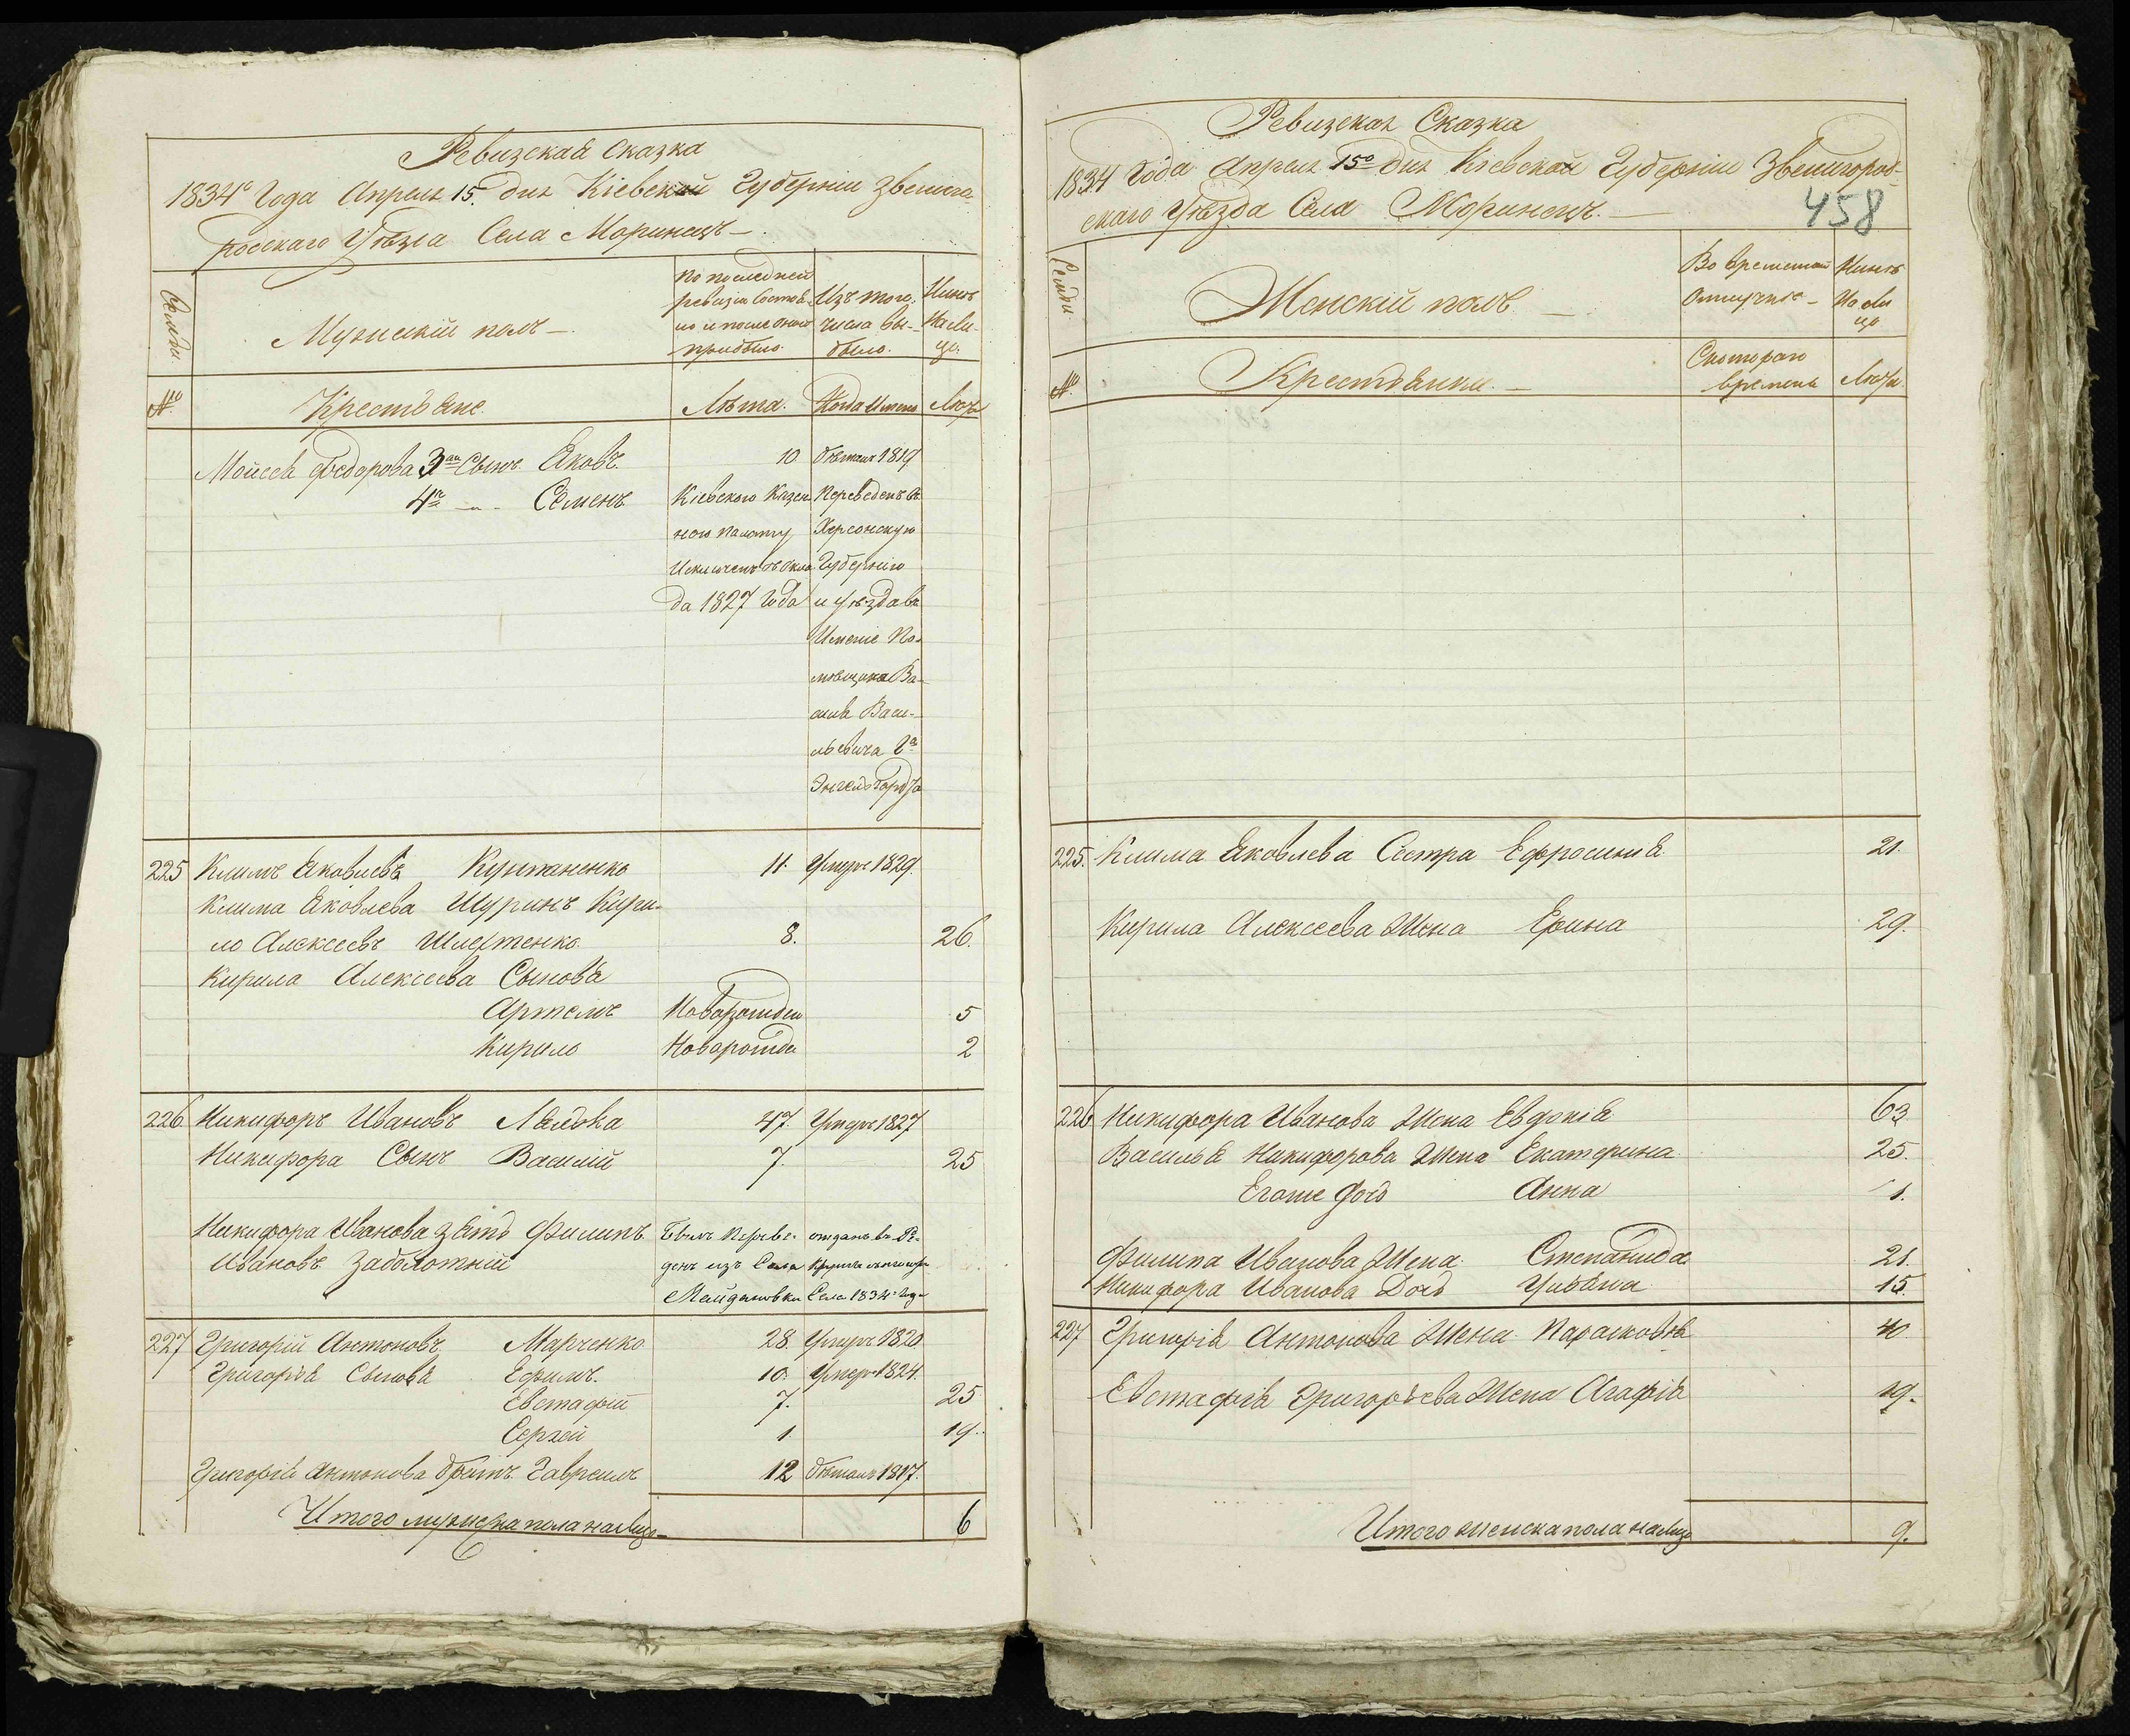 Ревизская сказка
1834го Года Апреля 15. дня Кіевской Губерніи Звениго
родскаго Уѣзда Села Моринецъ —
Семьи
Мужескій полъ —
По последней
ревизіи состоя-
ло и после оной
прибыло.
Изъ того
числа вы-
было.
Нынѣ
На ли
цо
№
Крестьяне.
Лѣта.
Когда Именно
Лѣта
Мойсея Федорова 3й Сынъ Яковъ 10 бѣжалъ 1819
4й — „ - Семенъ Кіевского Казен Переведенъ въ
ною палату Херсонскую
Исключенъ съ Окла Губернію
да 1827 Года и уѣзда въ
Имение По-
мѣщика Ва-
силія Васи-
льевича Га
Энгельгардта
225 Климъ Яковлевъ 11. Умеръ 1829.
Клима Яковлева Шуринъ Кири-
ло Алексеевъ 8. 26.
Кирила Алексеева Сыновя
Артемъ 5
Кирило Новорожде 2
226 Никифоръ Ивановъ 47. Умеръ 1827
Никифора Сынъ Василій 7. 25
Никифора Иванова зять Филипъ Былъ Переве- отданъ въ Ре-
Ивановъ Заболотній денъ изъ Села
Майдановки Села 1834го года
227 Григорій Антоновъ Марченко 28. Умеръ 1820
Григорія Сыновя Ефимъ. 10. Умеръ 1824.
Евстафій 7. 25
Сергей 1 19.
Григорія Антонова братъ Гавреилъ 12 бѣжалъ 1817.
Итого мужеска пола налицо — 6
Ревизская Сказка
1834 Года Апреля 15го дня Кіевской Губерніи Звенигород-
скаго Уѣзда Села Моринецъ. —
458
Семьи
Женскій полъ. —
Во временной
Отлучкѣ —
Нынѣ
На ли
цо
№
Крестьянки. —
Скотораго
времени
Лѣта.
225. Клима Яковлева Сестра Ефросинія 21.
Кирила Алексеева Жена Ерина 29.
226 Никифора Иванова Жена Евдокія 63
Василья Никифорова Жена Екатерина 25.
Егоже Дочь Анна 1.
Филипа Иванова Жена Степанида 21.
Никифора Иванова Дочь Уліяна 15.
227 Григорія Антонова Жена Парасковія 40.
Евстафія Григорьева Жена Агафія 19.
Итого женска пола налицо 9.